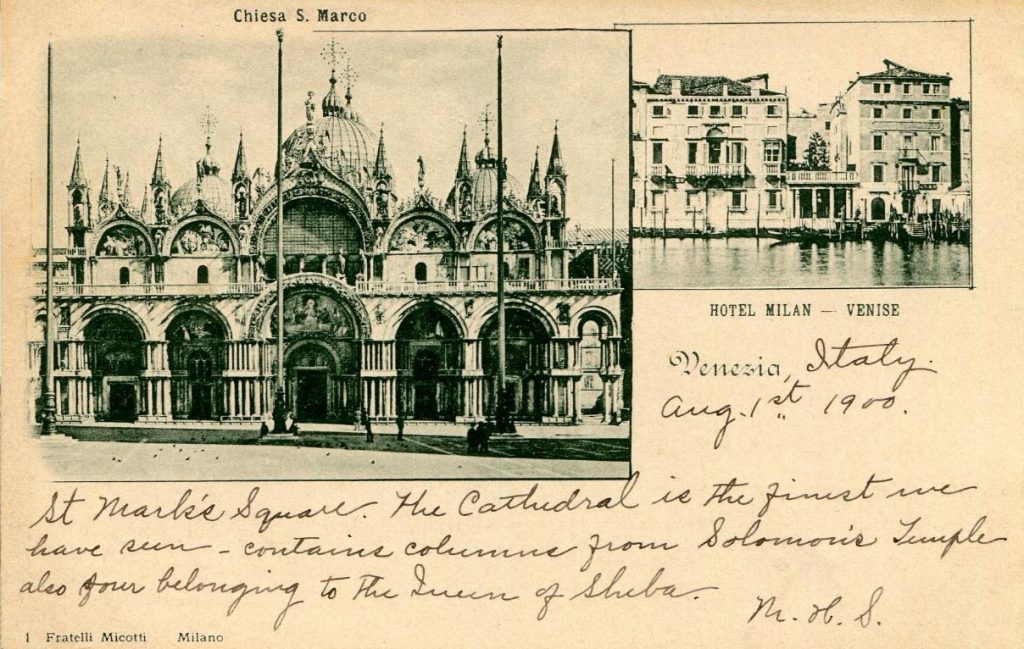 Chiesa S. Marco
HOTEL MILAN — VENISE
Venezia, Italy.
Aug. 1st 1900.
St Mark's Square. The Cathedral is the finest we
have seen - contains columns from Solomon's Temple
also four belonging to the Queen of Sheba.
M. H. S.
1 Fratelli Micotti Milano